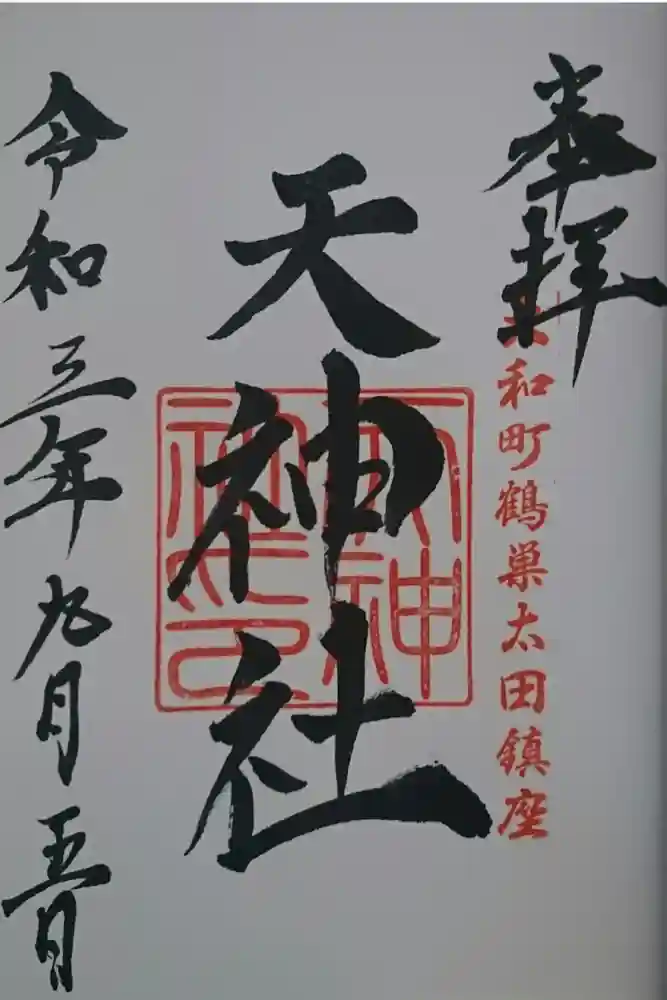 奉拝
大和町鶴巣太田鎮座
天神社
天神社印
令和三年九月五日